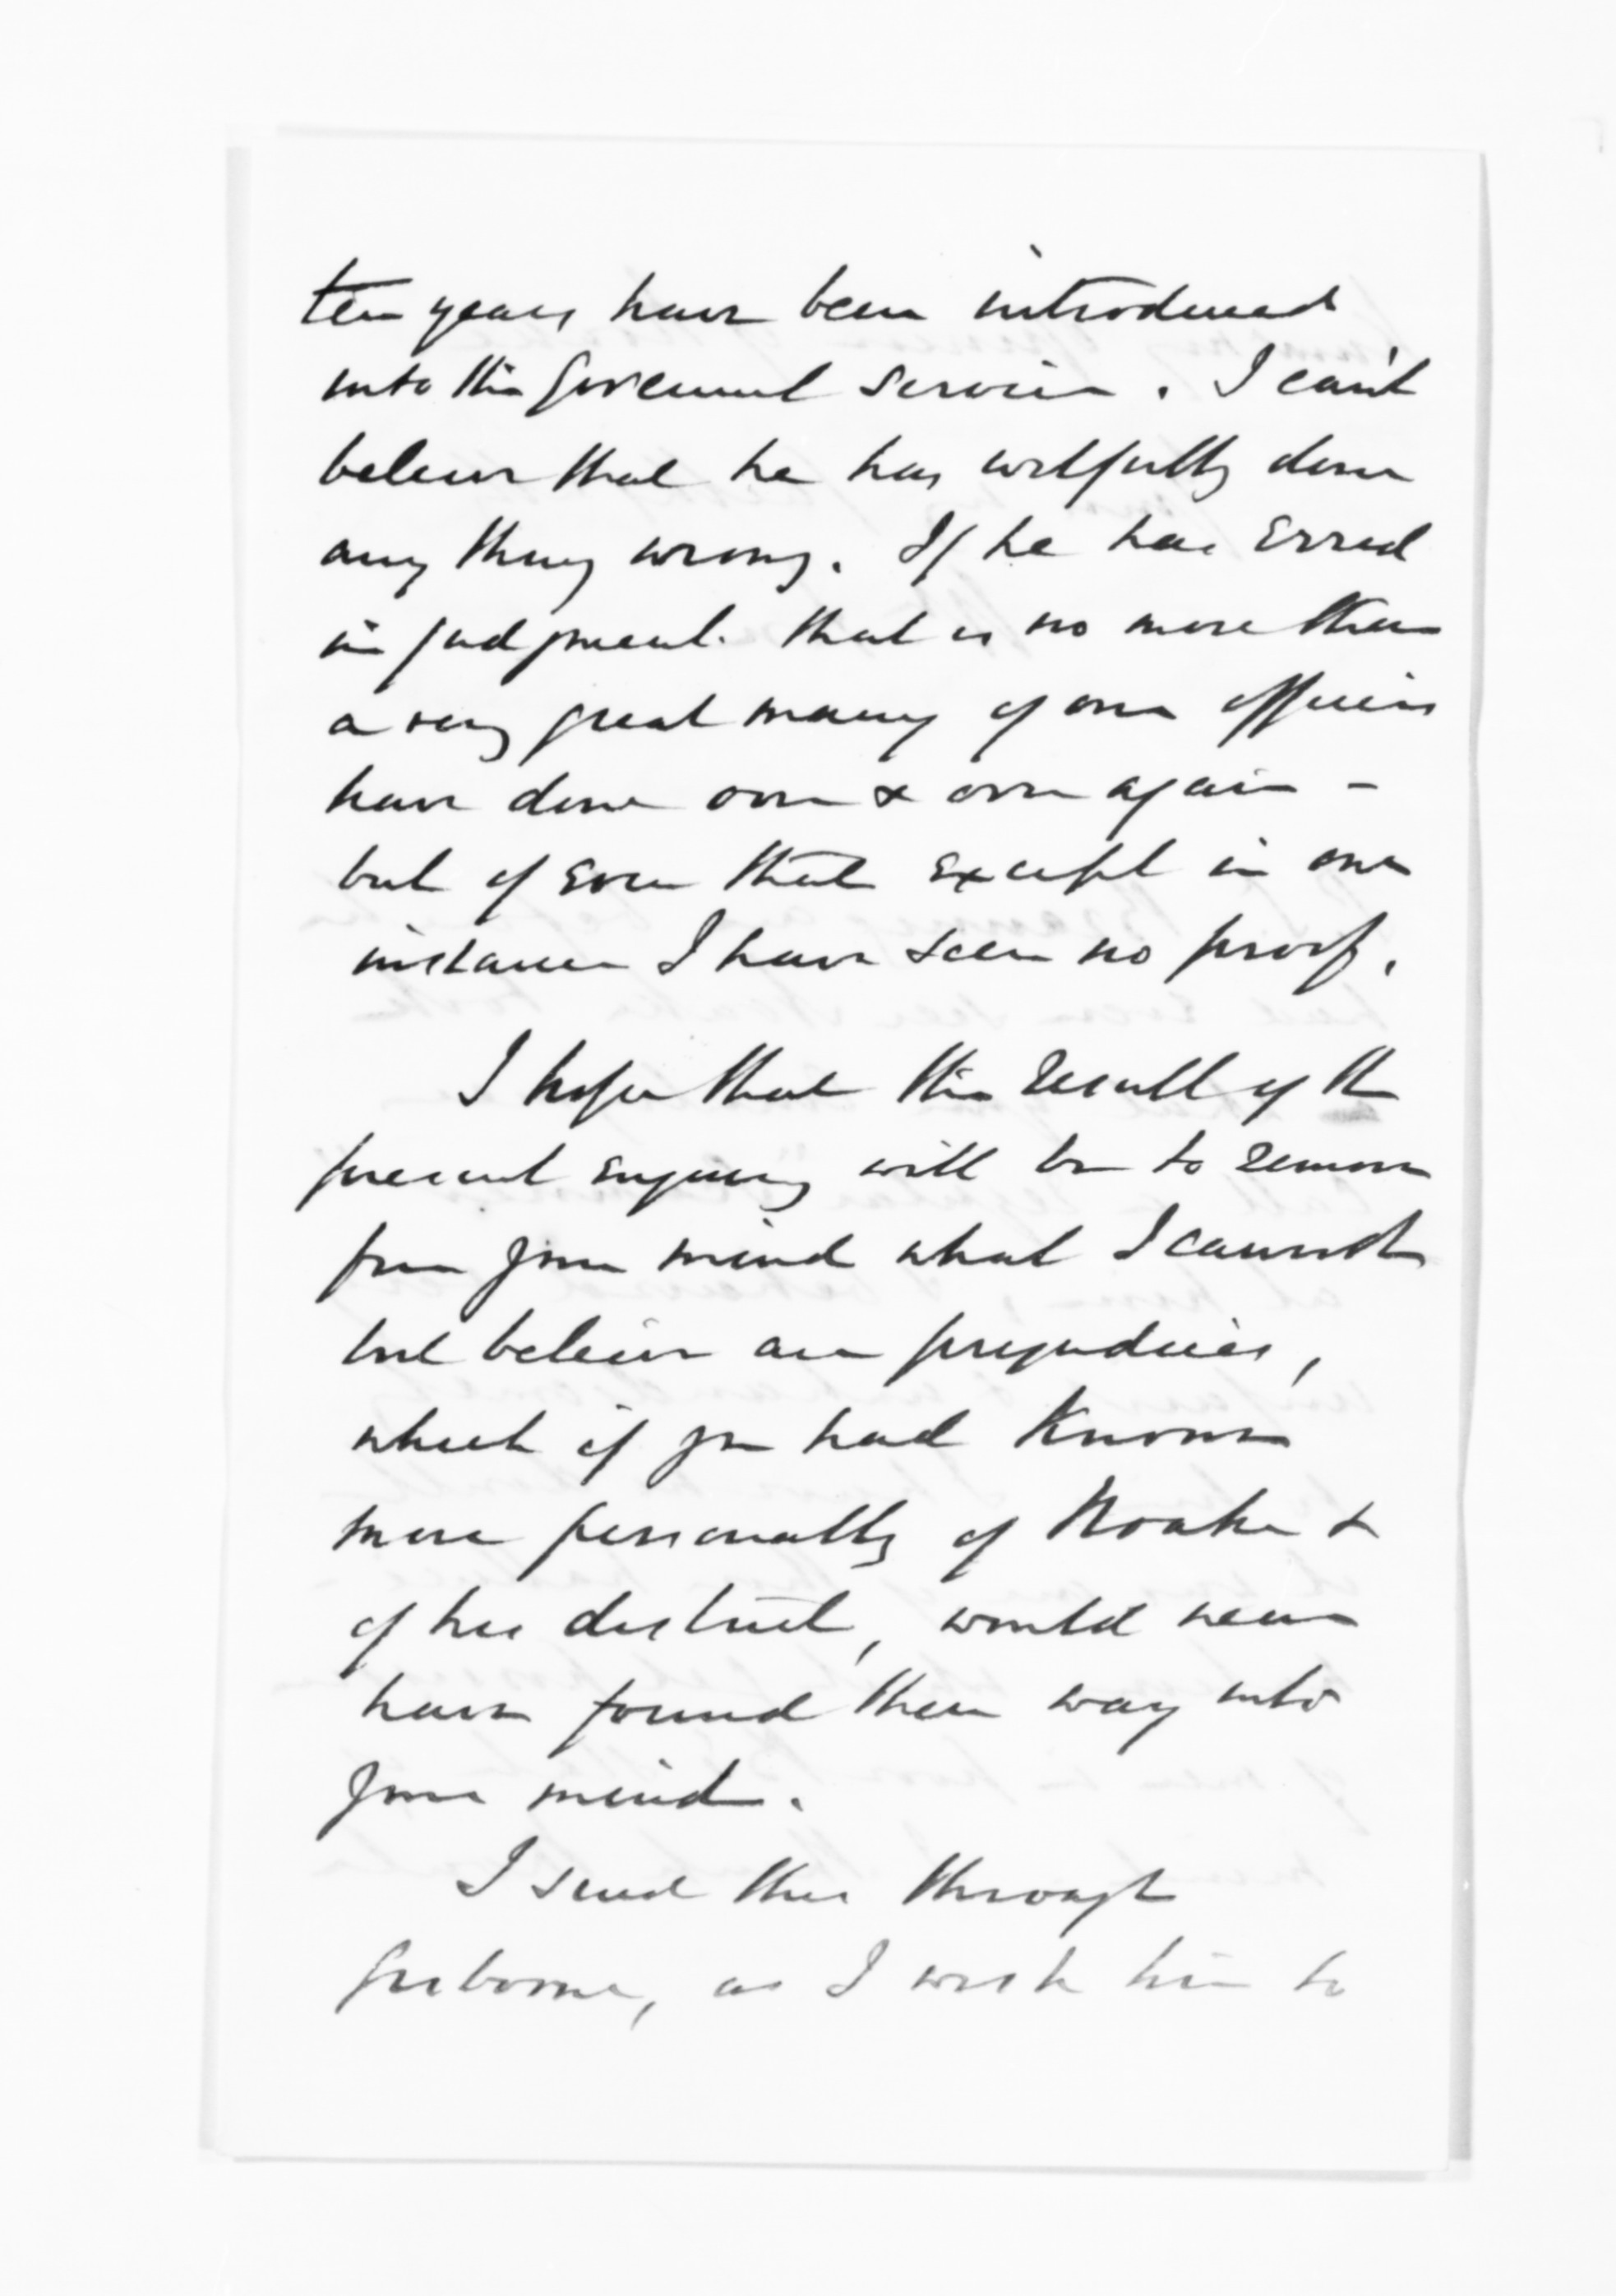 ten years have been introduced
into the Government Service. I can't
believe that he has wilfully done
any thing wrong. If he has erred
in judgment. that is no more than
a very great many of our officers
have done over & over again -
but of even that except in one
instance I have seen no proof.
I hope that the result of the
present enquiry will be to remove
from your mind what I cannot
but believe are prejudices,
which if you had known
more personally of Noake &
of his district, would never
have found their way into
your mind.
I send this through
Gisborne, as I wish him to